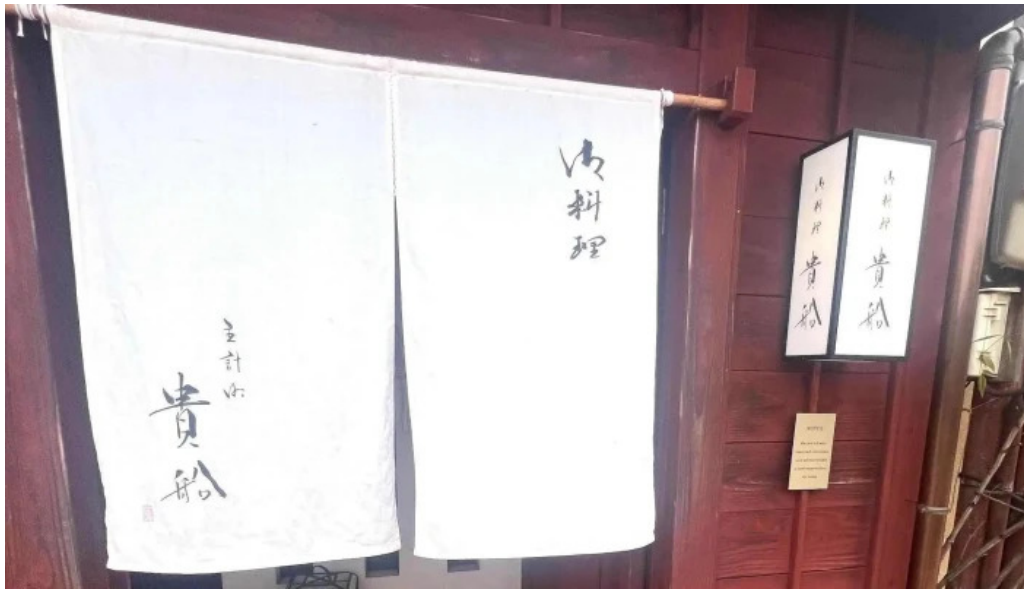 御料理
主計町
貴船
御料理
貴船
御料理
貴船